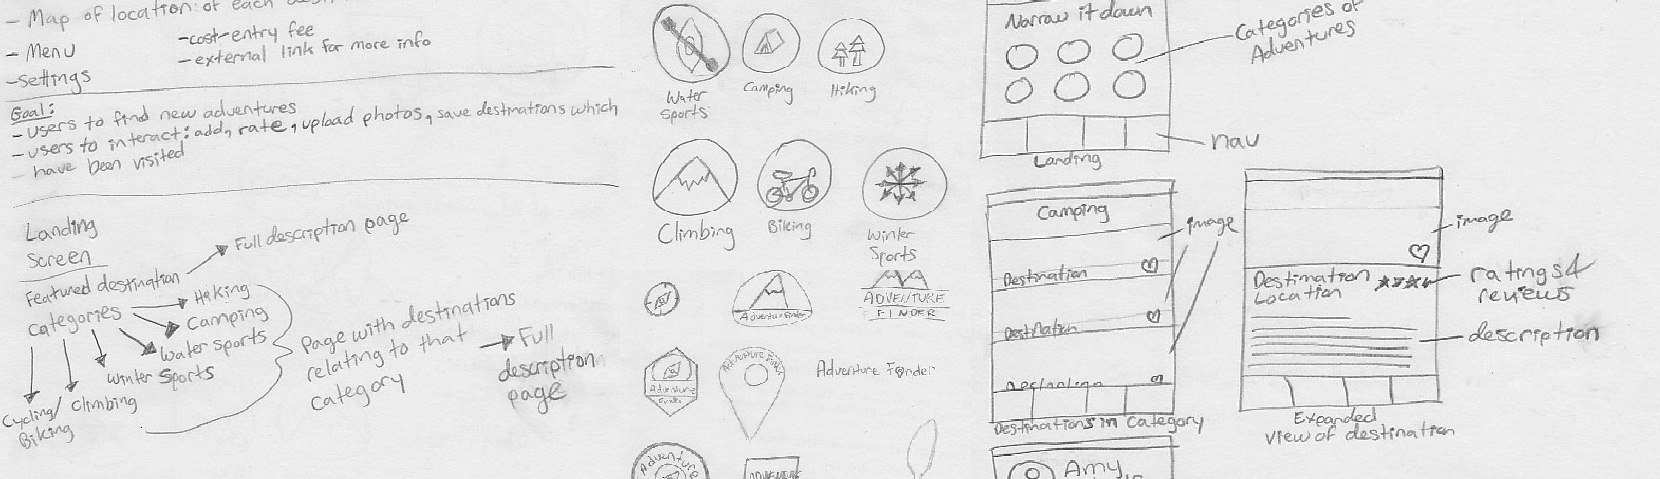 - Map of location of each
- Menu
- Settings
- cost-entry fee
- external link for more info
Goal:
- users to find new adventures
- users to interact: add, rate, upload photos, save destinations which
have been visited
Landing
Screen
Featured destination
Full description page
Categories
Hiking
Camping
Water sports
Winter Sports
Climbing
Cycling/
Biking
Page with destinations
relating to that
category
Full
description
page
Water
Sports
Camping
Hiking
Climbing
Biking
Winter
Sports
Adventure Finder
ADVENTURE
FINDER
Adventure
Finder
Adventure Finder
Adventure Finder
Adventure
ADVENTURE
Narrow it down
Categories of
Adventures
nav
Landing
Camping
image
Destination
Destination
Destination
Destinations in Category
Amy
image
Destination
Location
ratings &
reviews
description
Expanded
view of destination